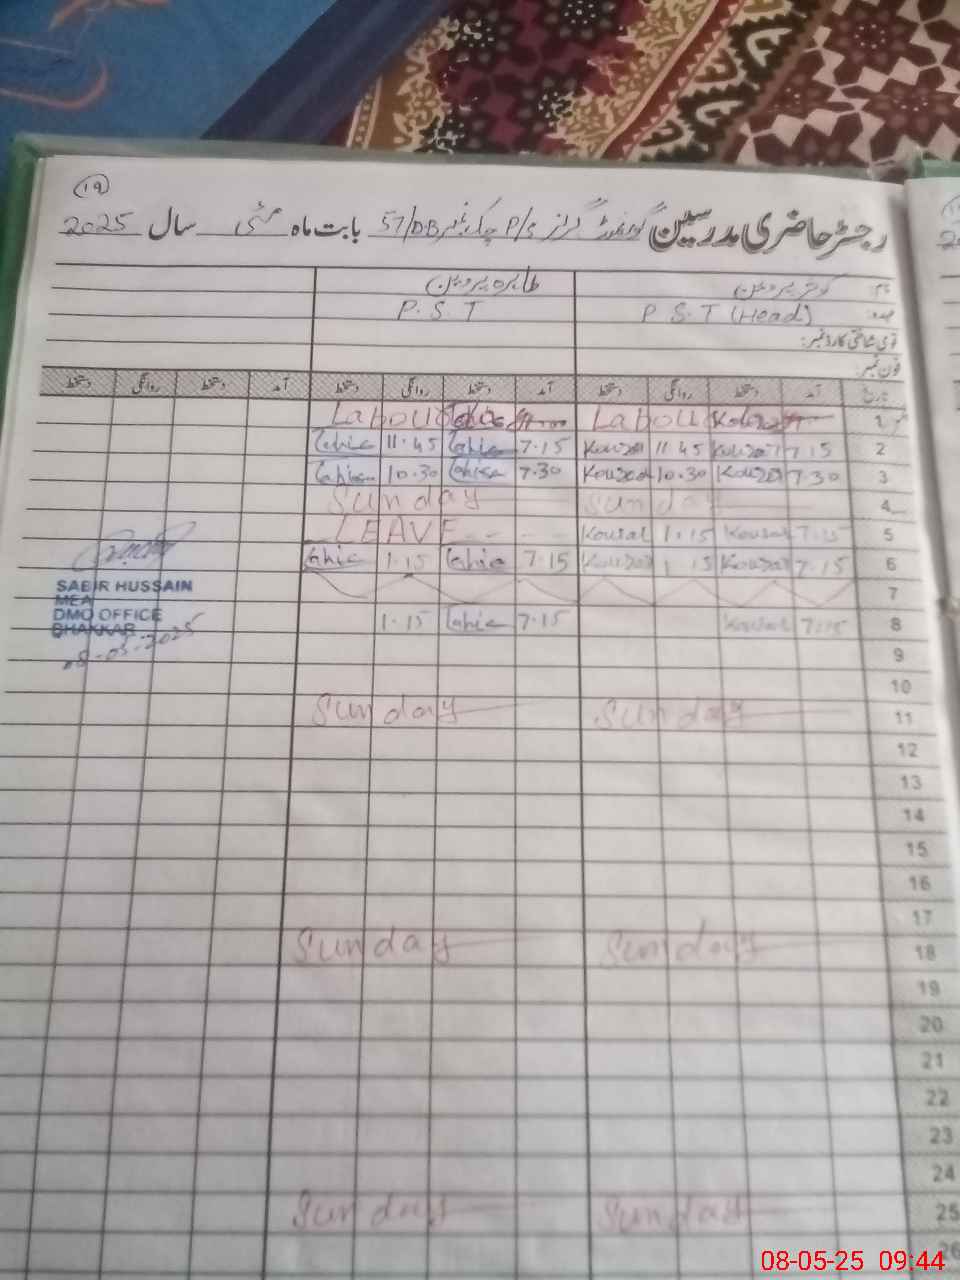 ۱۹
رجسٹر حاضری مدرسین گورنمنٹ گرلز P/S چک نمبر 57/DB بابت ماہ مئی سال 2025
نام: کوثر پروین طاہرہ پروین
عہدہ: P.S.T (Head) P.S.T
قومی شناختی کارڈ نمبر:
فون نمبر:
تاریخ آمد دستخط روانگی دستخط آمد دستخط روانگی دستخط آمد دستخط روانگی دستخط
1 Labour Labour
2 7.15 Kousar 11.45 Kousar 7.15 Tahira 11.45 Tahira
3 7.30 Kousar 10.30 Kousar 7.30 Tahira 10.30 Tahira
4 Sunday Sunday
5 7.15 Kousar 1.15 Kousar LEAVE
6 7.15 Kousar 1.15 Kousar 7.15 Tahira 1.15 Tahira
7
8 7:15 Kousar 7.15 Tahira 1.15
9
10
11 Sunday Sunday
12
13
14
15
16
17
18 Sunday Sunday
19
20
21
22
23
24
25 Sunday Sunday
26
SABIR HUSSAIN
MEA
DMO OFFICE
BHAKKAR
08-05-2025
08-05-25 09:44